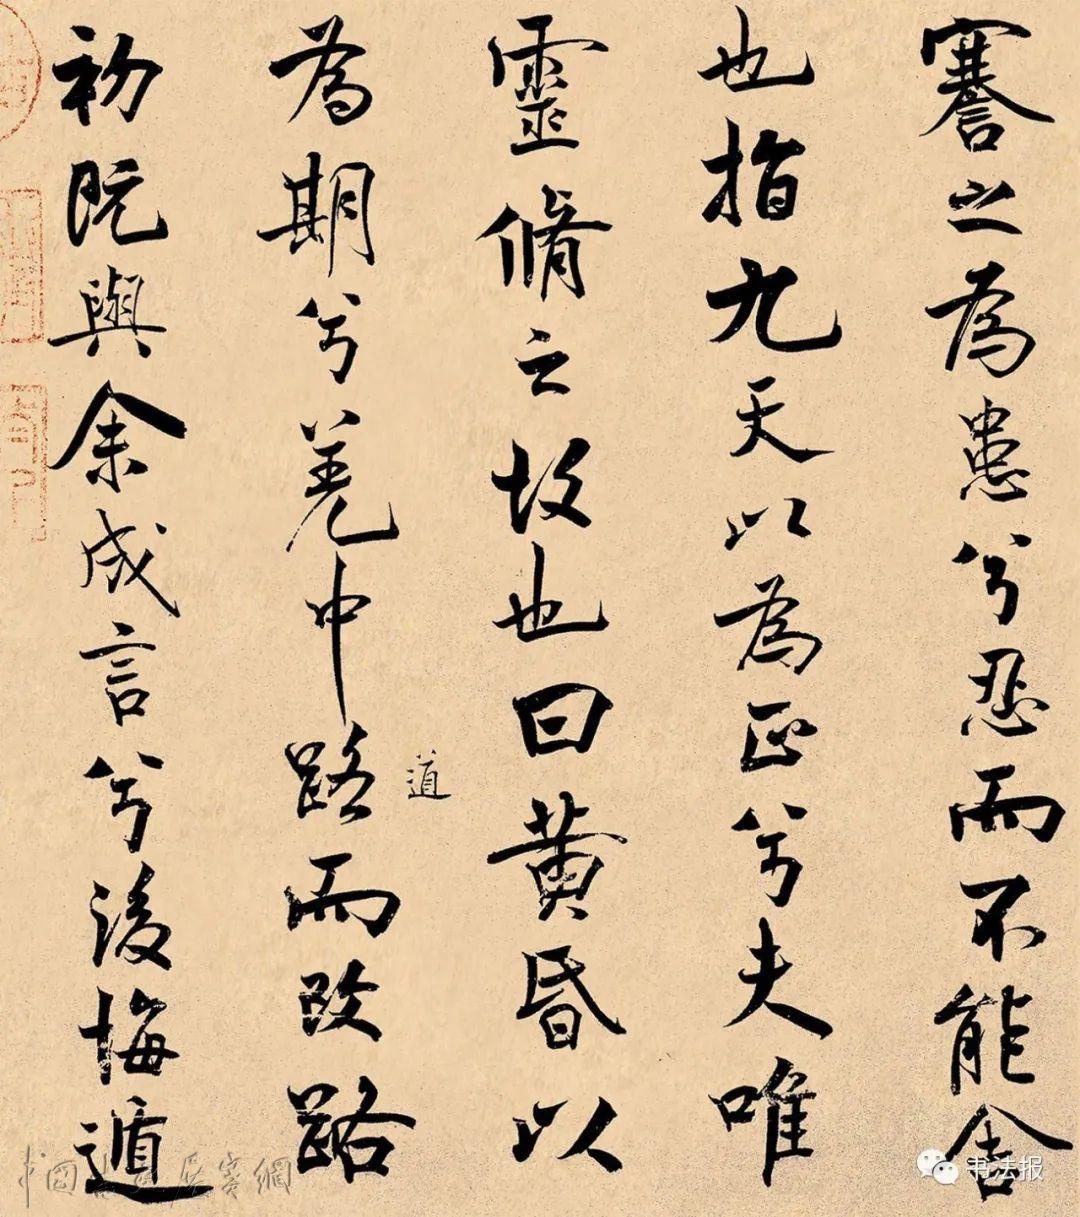 謇之為患兮忍而不能舍
也指九天以為正兮夫唯
靈脩之故也曰黄昏以
為期兮羌中路而改路
道
初既與余成言兮後悔遁
书法报